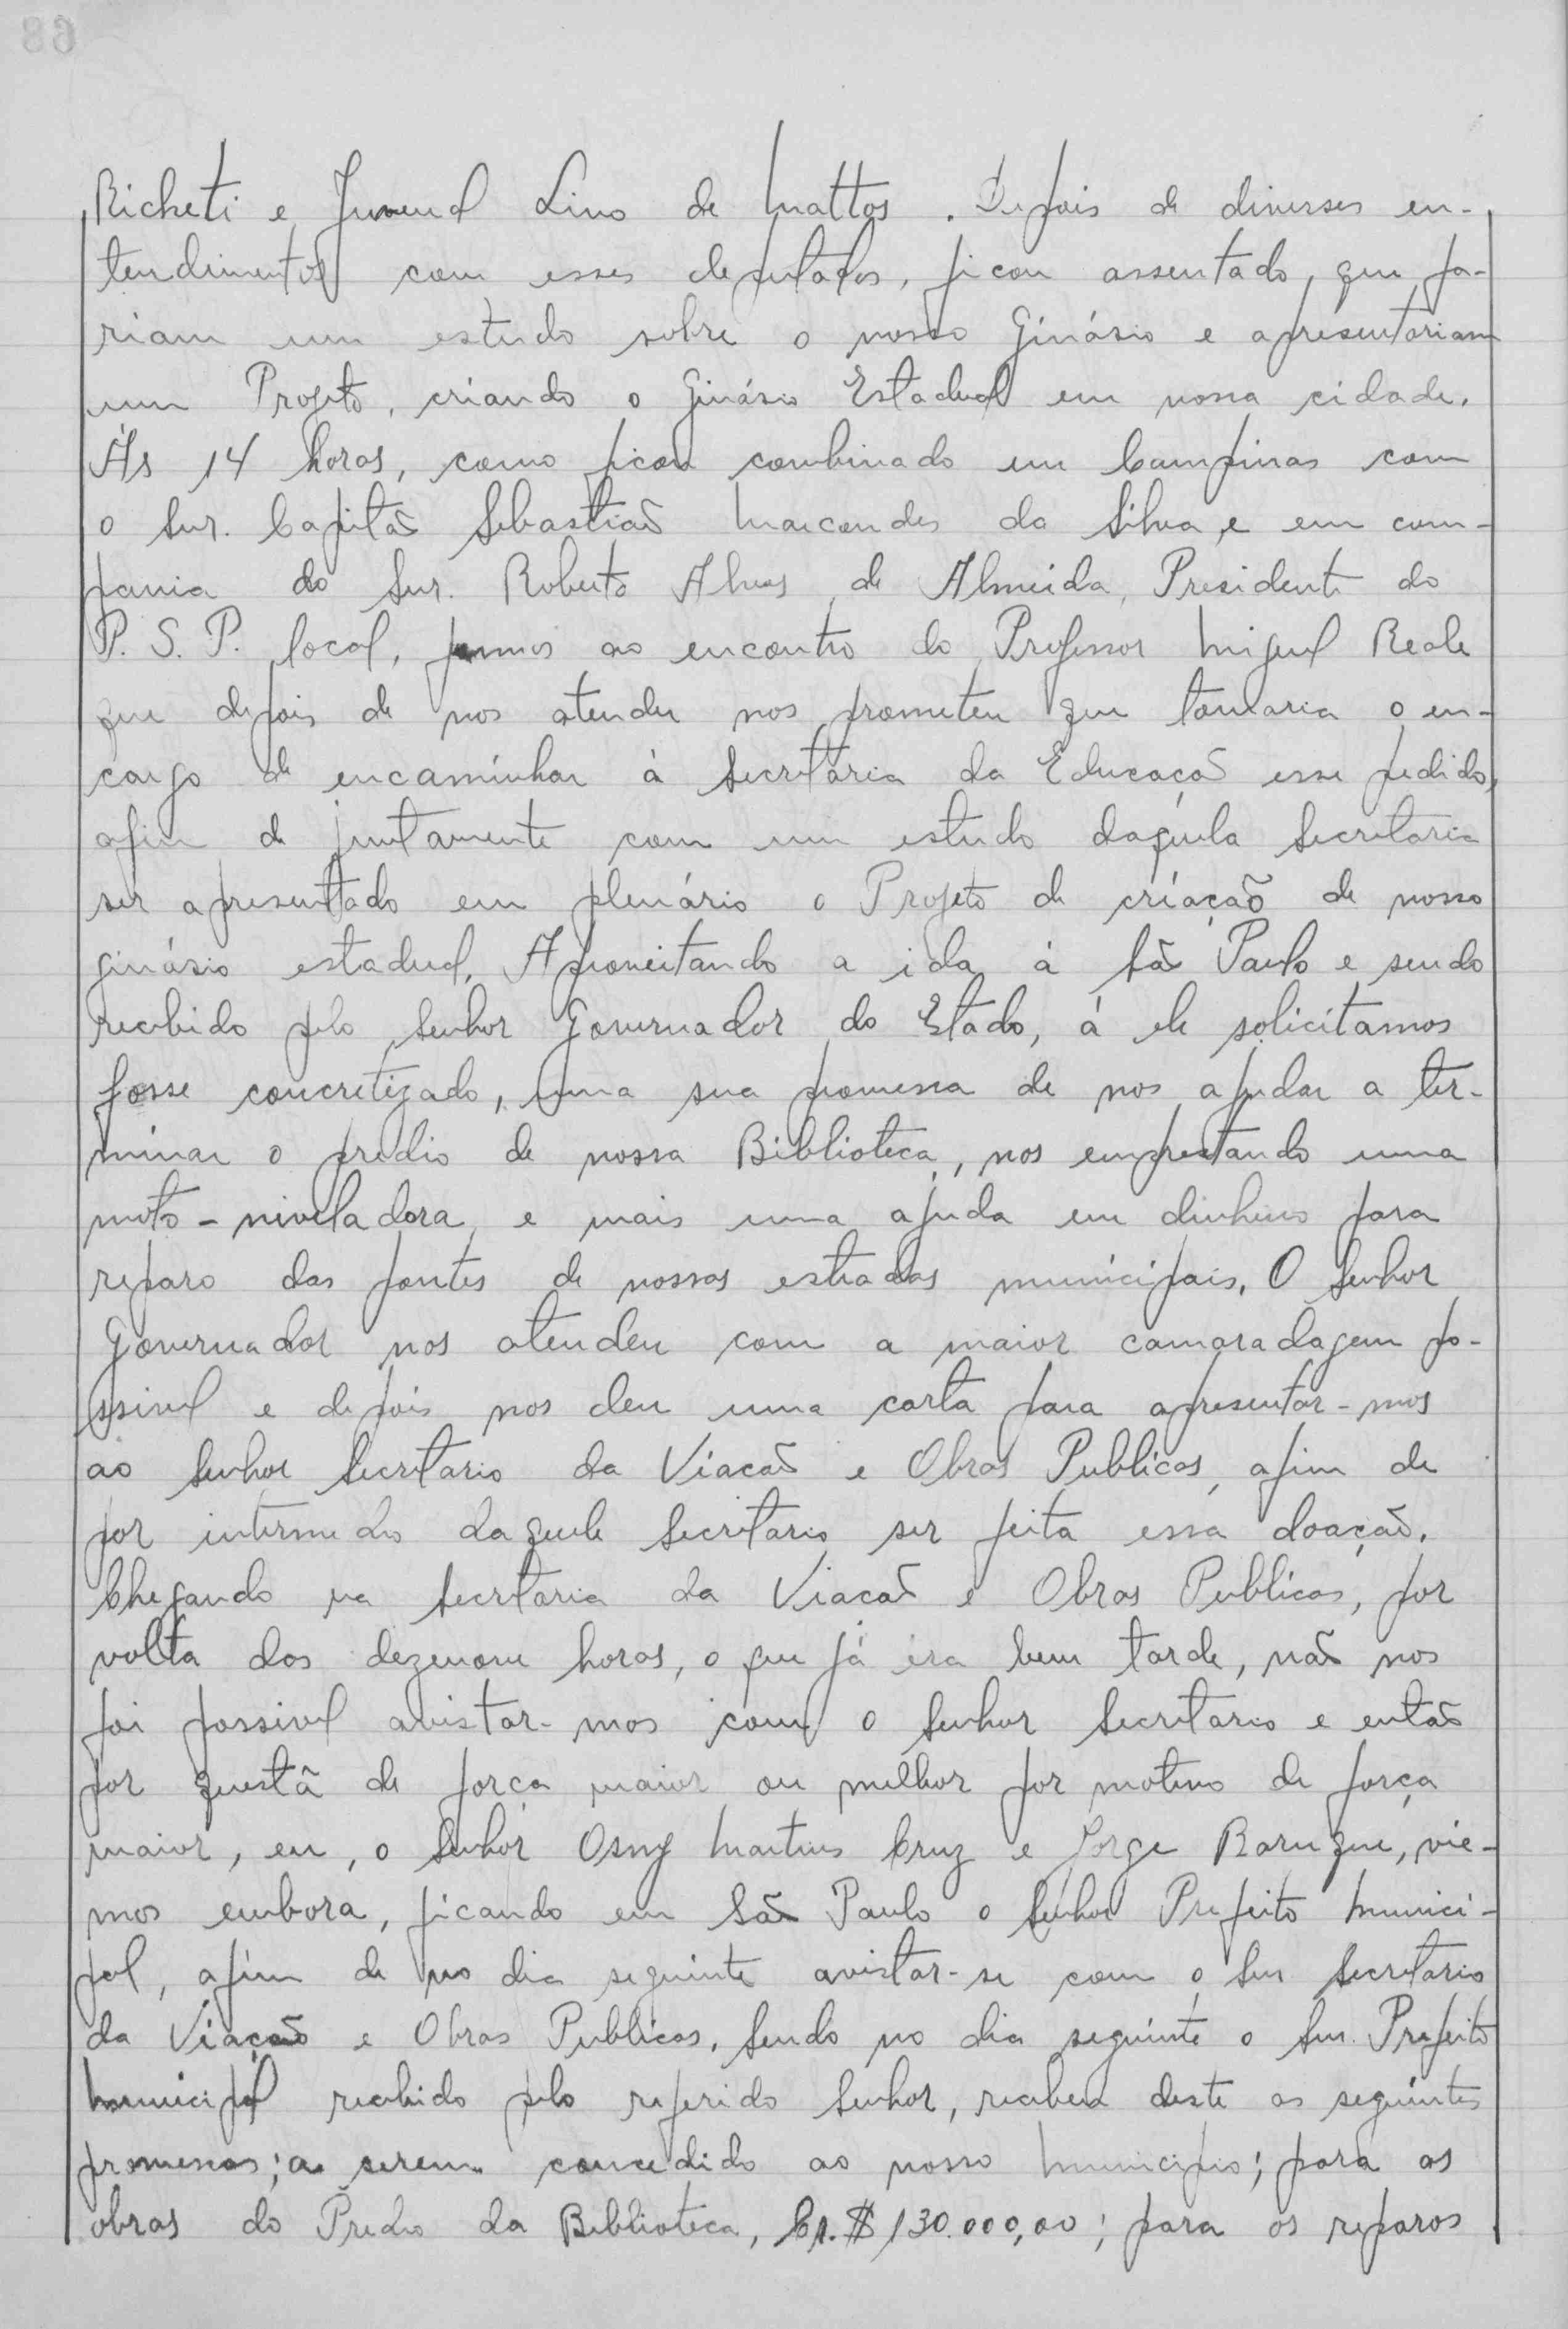 Richeti e Juvenal Lino de Mattos. Depois de diverses en-
tendimentos com esses deputados, ficou assentado, que fa-
riam um estudo sobre o nosso Ginásio e apresentariam
um Projeto, criando o Ginásio Estadual em nossa cidade.
Ás 14 horas, como ficou combinado em Campinas com
o Snr. Capitão Sebastião Marcondes da Silva e em com-
pania do Snr. Roberto Alves de Almeida, Presidente do
P. S. P. local, fomos ao encontro do Professor Miguel Reale
que depois de nos atender nos prometeu que tomaria o en-
cargo de encaminhar à Secretaria da Educação esse pedido,
afim de juntamente com um estudo daquela Secretaria
ser apresentado em plenário o Projeto de criação de nosso
ginásio estadual. Aproveitando a ida á São Paulo e sendo
recebido pelo Senhor Governador do Estado, á ele solicitamos
fosse concretizado, uma sua promessa de nos ajudar a ter-
minar o predio de nossa Biblioteca, nos emprestando uma
moto-niveladora, e mais uma ajuda em dinheiro para
reparo das pontes de nossas estradas municipais. O Senhor
Governador nos atendeu com a maior camaradagem po-
ssivel e depois nos deu uma carta para apresentar-mos
ao Senhor Secretario da Viacão e Obras Publicas, afim de
por intermedio daquele Secretario ser feita essa doação.
Chegando na Secretaria da Viacão e Obras Publicas, por
volta das dezenove horas, o que já era bem tarde, não nos
foi possivel avistar-mos com o Senhor Secretario e então
por questã de força maior ou melhor por motivo de força
maior, eu, o Senhor Osny Martins Cruz e Jorge Baruque, vie-
mos embora, ficando em São Paulo o Senhor Prefeito Munici-
pal, afim de no dia seguinte avistar-se com o Snr Secretario
da Viação e Obras Publicas. Sendo no dia seguinte o Snr. Prefeito
Municipal recebido pelo referido Senhor, recebeu deste as seguintes
promessas; a serem concedido ao nosso Municipio; para as
obras do Predio da Biblioteca, Cr.$ 130.000,00; para os reparos